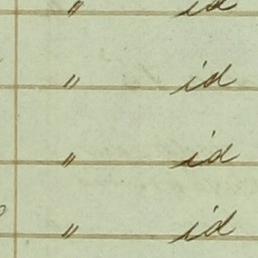 " id
" id
" id
" id